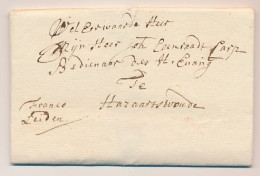 Wel Eerwaarde Heer
Mijn Heer Joh Coenraadt Carp
Bedienaar des H. Evang
Te
Hazaartswoude
Franco
Leiden